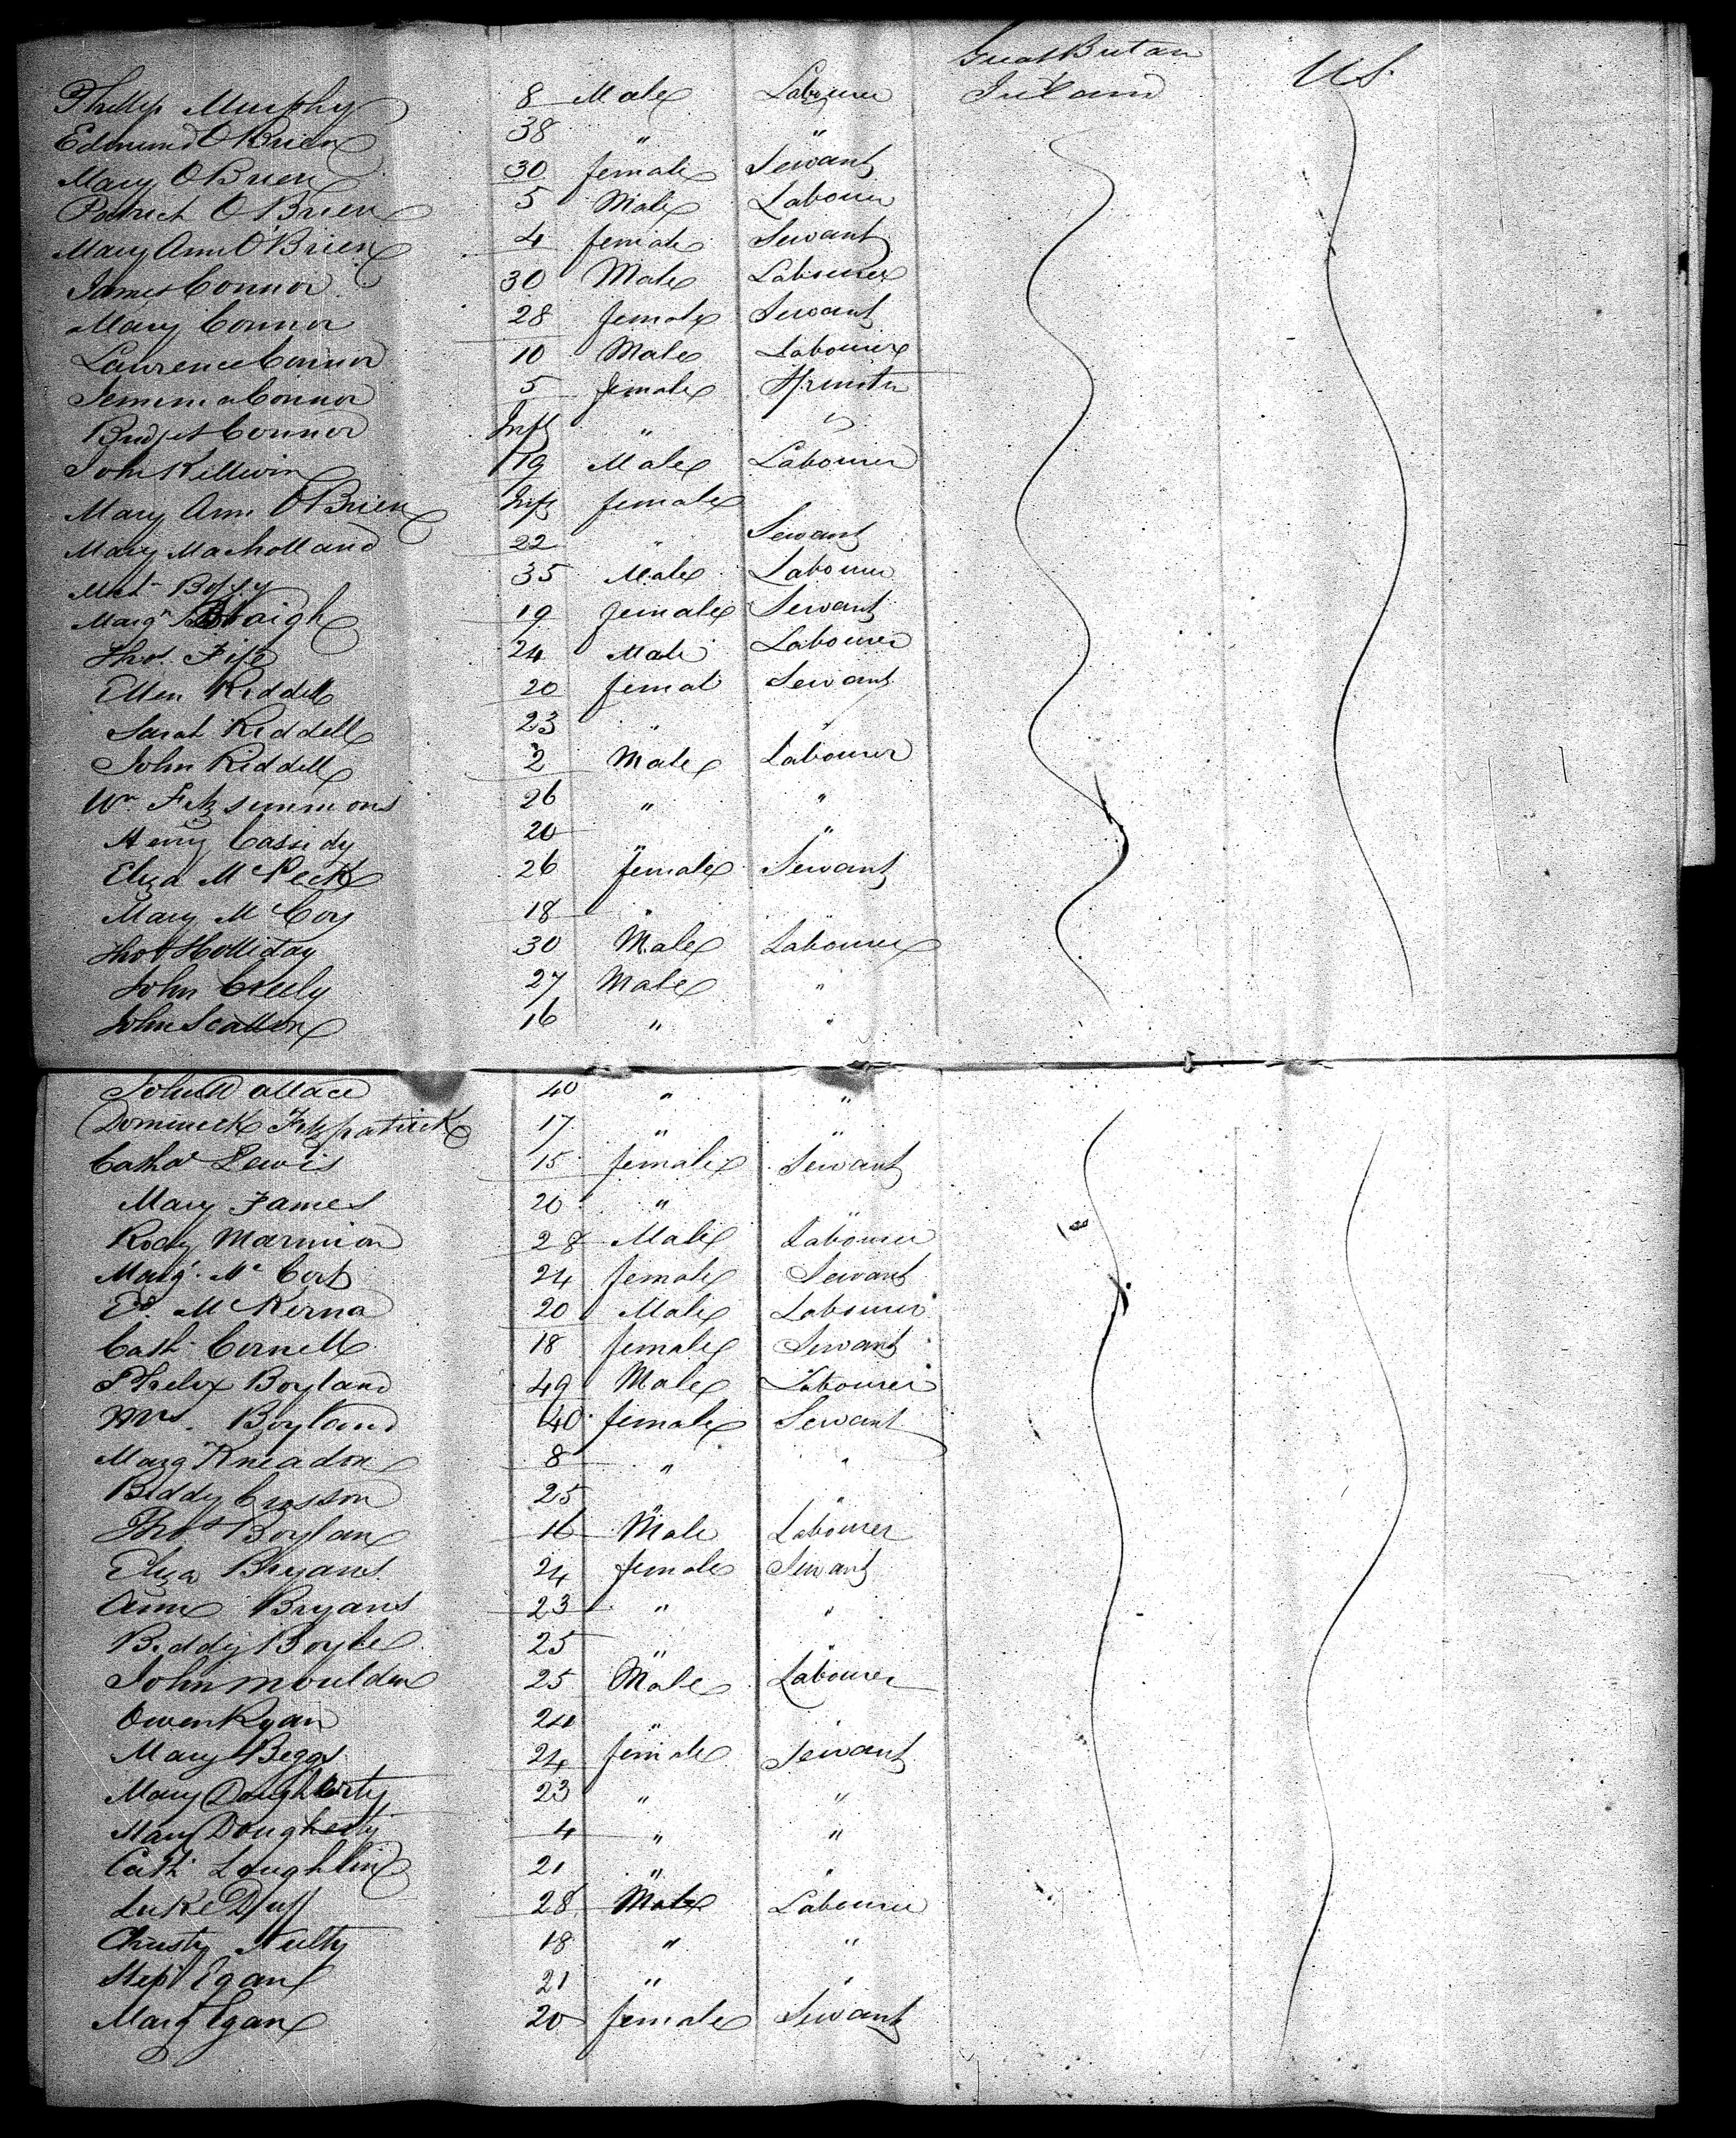 Great Britan
Phillip Murphy 8 Male Labourer Ireland US.
Edmund O'Brien 38 " "
Mary O'Brien 30 female Servant
Patrick O'Brien 5 Male Labourer
Mary Ann O'Brien 4 female Servant
James Connor 30 Male Labourer
Mary Connor 28 female Servant
Lawrence Connor 10 Male Labourer
Jemima Connor 5 female Spinster
Bridget Connor Inft " "
John Killwin 19 Male Labourer
Mary Ann O'Brien Inft female
Mary Macholland 22 " Servant
35 Male Labourer
Margt 19 female Servant
Thos. Fife 24 Male Labourer
Ellen Riddell 20 femal Servant
Sarah Riddell 23 " "
John Riddell 2 Male Labourer
Wm Fitzsimmons 26 " "
Henry Cassidy 20 " "
Eliza McPeck 26 female Servant
Mary McCoy 18 " "
Thos Holliday 30 Male Labourer
John Creely 27 Male "
John Scallon 16 " "
John Wallace 40 " "
Dominick Fitzpatrick 17 " "
Catha Lewis 15 female Servant
Mary James 20 " "
Rody Marmion 28 Male Labourer
Margt. Mc Cort 24 female Servant
Ed. McKerna 20 Male Labourer
Cath. Cornell 18 female Servant
Phelix Boyland 49 Male Labourer
Mrs. Boyland 40 female Servant
Marg Kneadon 8 " "
Biddy Crosson 25 " "
Thos Boylan 16 Male Labourer
Eliza Bryans 24 female Servant
Anne Bryans 23 " "
Biddy Boyle 25 " "
John Moulden 25 Male Labourer
Owen Ryan 24 " "
Mary Beggs 24 female Servant
Mary Dougherty 23 " "
Mary Dougherty 4 " "
Cath Loughlin 21 " "
Luke Duff 28 Male Labourer
Christy Nulty 18 " "
Stepn Egan 21 " "
Margt Egan 20 female Servant